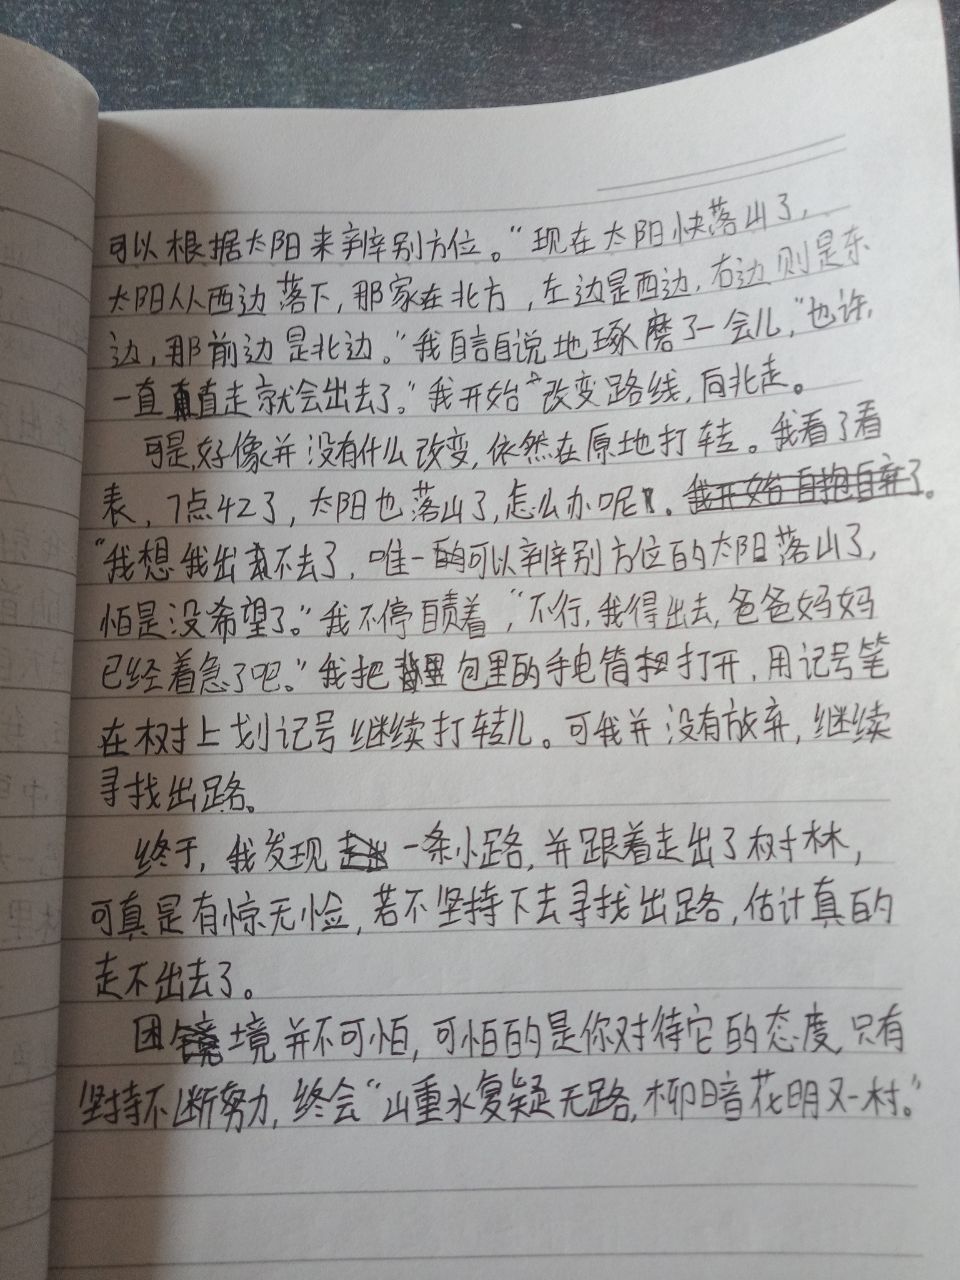 可以根据太阳来辨别方位。“现在太阳快落山了，
太阳从西边落下，那家在北方，左边是西边，右边则是东
边，那前边是北边。”我自言自说地琢磨了一会儿，“也许，
一直直走就会出去了。”我开始改变路线，向北走。
可是，好像并没有什么改变，依然在原地打转。我看了看
表，7点42了，太阳也落山了，怎么办呢。我开始自抱自弃了。
“我想我出不去了，唯一可以辨别方位的太阳落山了，
怕是没希望了。”我不停自责着，“不行，我得出去，爸爸妈妈
已经着急了吧。”我把背包里的手电筒打开，用记号笔
在树上划记号继续打转儿。可我并没有放弃，继续
寻找出路。
终于，我发现一条小路，并跟着走出了树林，
可真是有惊无险，若不坚持下去寻找出路，估计真的
走不出去了。
困境并不可怕，可怕的是你对待它的态度，只有
坚持不断努力，终会“山重水复疑无路，柳暗花明又一村。”